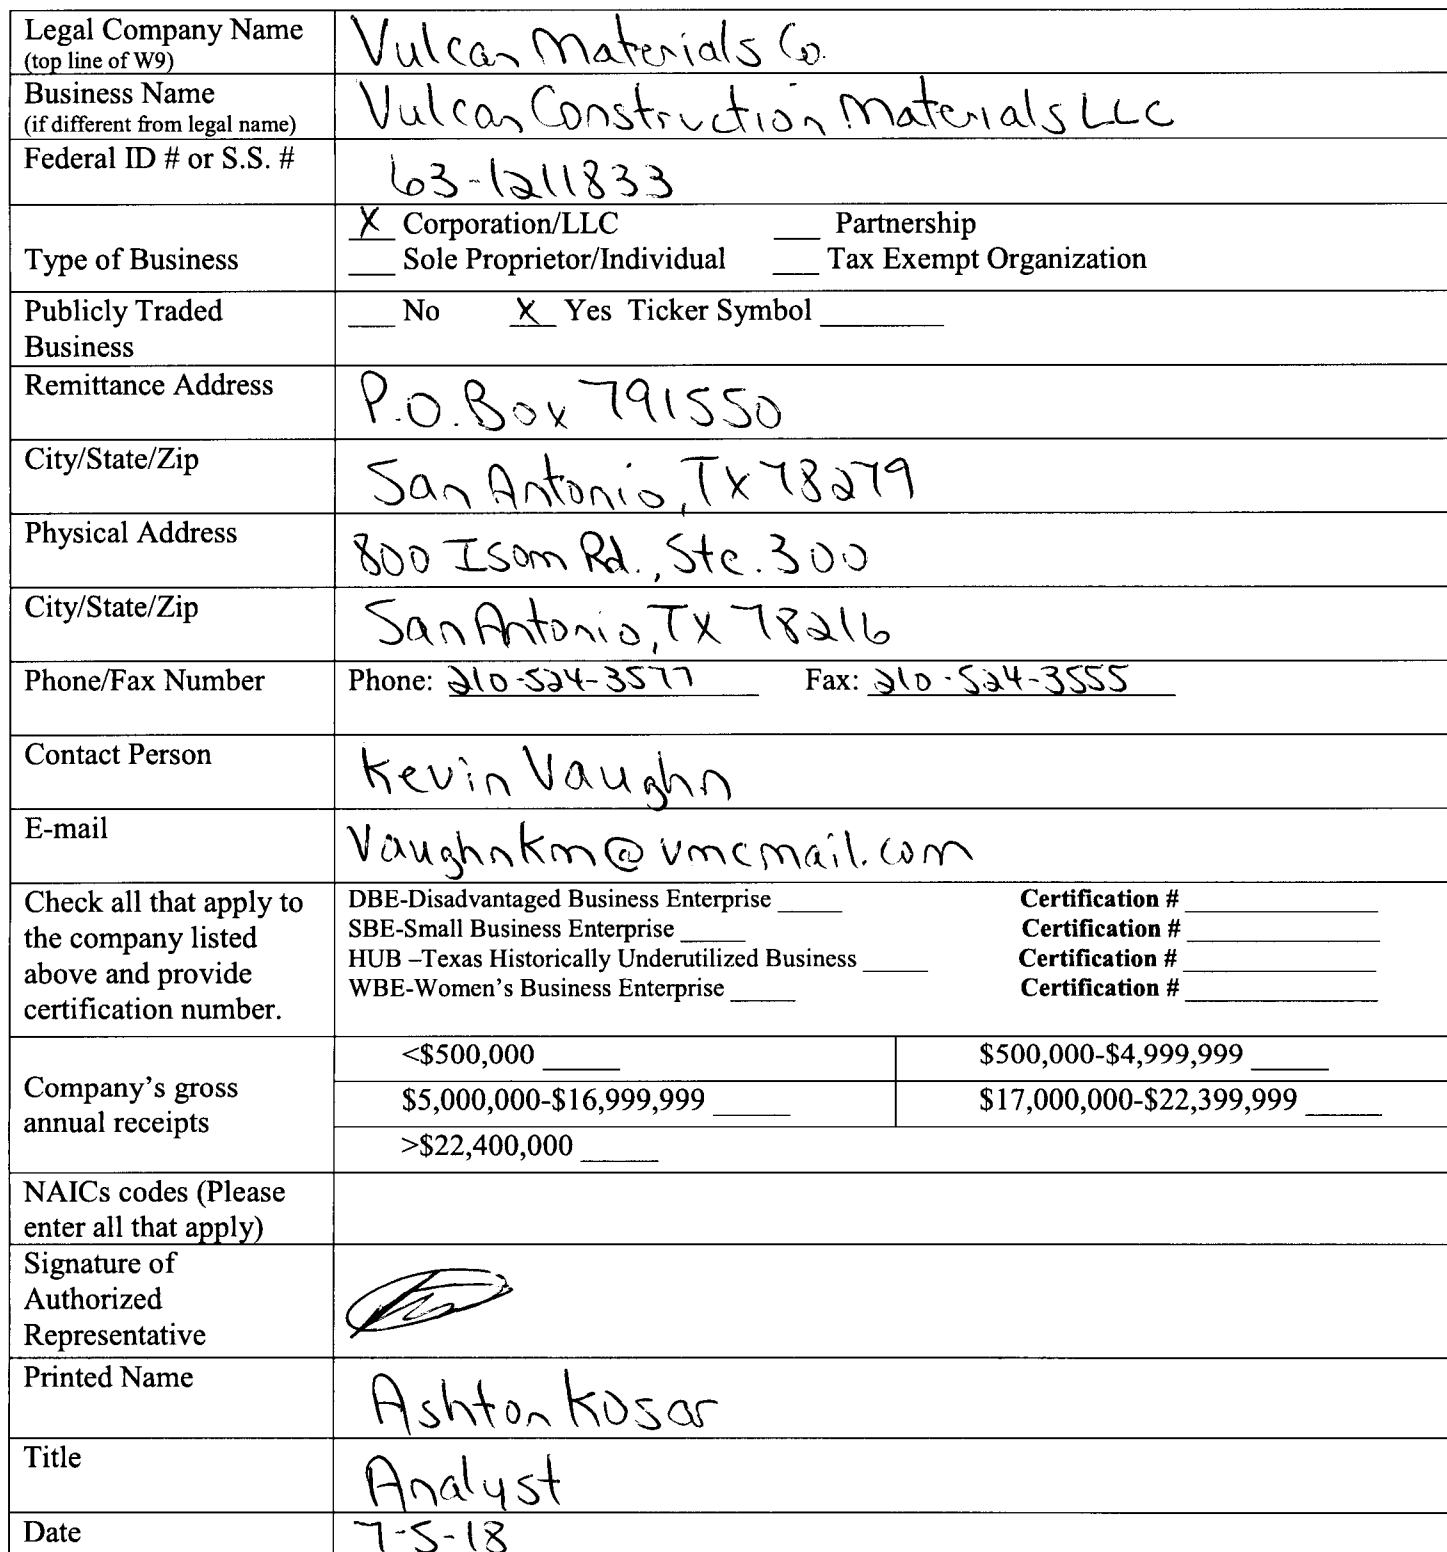 Legal Company Name
(top line of W9)
Vulcan Materials Co.
Business Name
(if different from legal name)
Vulcan Construction Materials LLC
Federal ID # or S.S. #
63-1211833
Type of Business
X Corporation/LLC ___ Partnership
___ Sole Proprietor/Individual ___ Tax Exempt Organization
Publicly Traded
Business
___ No X Yes Ticker Symbol ________
Remittance Address
P.O. Box 791550
City/State/Zip
San Antonio, TX 78279
Physical Address
800 Isom Rd., Ste. 300
City/State/Zip
San Antonio, TX 78216
Phone/Fax Number
Phone: 210-524-3577 Fax: 210-524-3555
Contact Person
Kevin Vaughn
E-mail
Vaughnkm@vmcmail.com
Check all that apply to
the company listed
above and provide
certification number.
DBE-Disadvantaged Business Enterprise _____ Certification # _______________
SBE-Small Business Enterprise _____ Certification # _______________
HUB –Texas Historically Underutilized Business _____ Certification # _______________
WBE-Women's Business Enterprise _____ Certification # _______________
Company's gross
annual receipts
<$500,000 _____ $500,000-$4,999,999 _____
$5,000,000-$16,999,999 _____ $17,000,000-$22,399,999 _____
>$22,400,000 _____
NAICs codes (Please
enter all that apply)
Signature of
Authorized
Representative
Printed Name
Ashton Kosar
Title
Analyst
Date
7-5-18